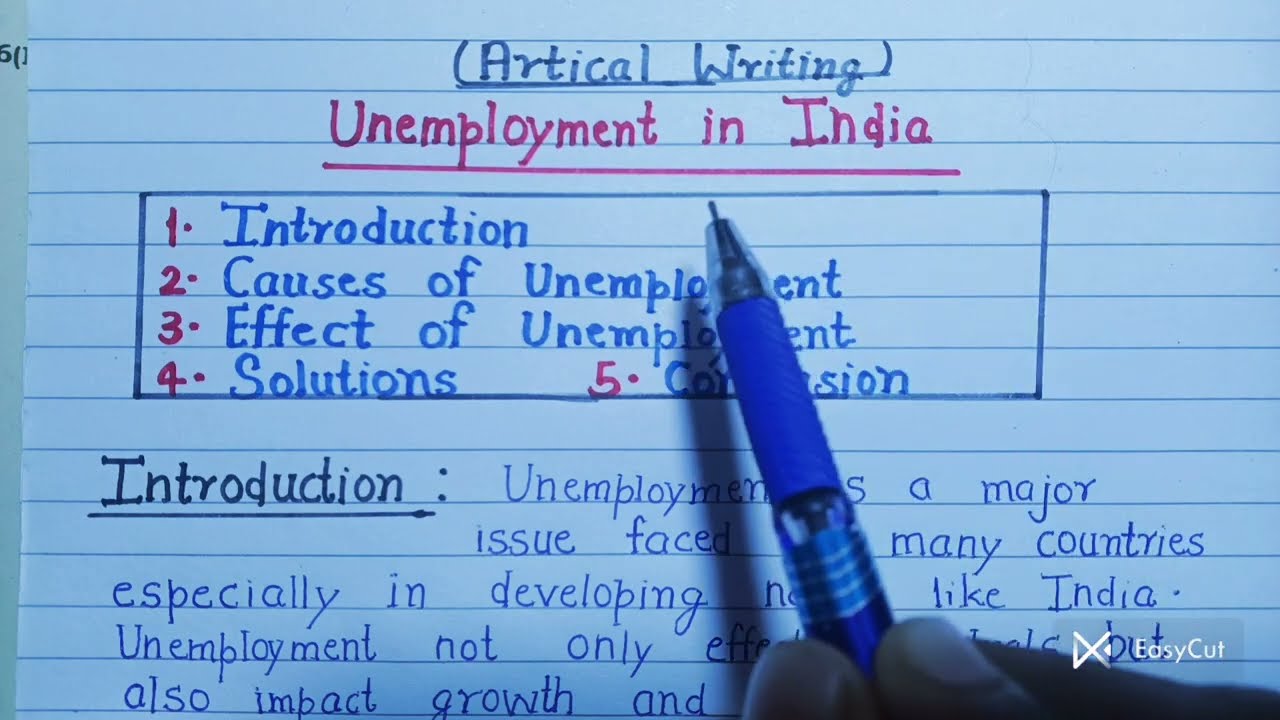 6(1
(Artical Writing)
Unemployment in India
1. Introduction
2. Causes of Unemployment
3. Effect of Unemployment
4. Solutions 5. Conclusion
Introduction : Unemployment is a major
issue faced many countries
especially in developing like India.
Unemployment not only but
also impact growth and
EasyCut